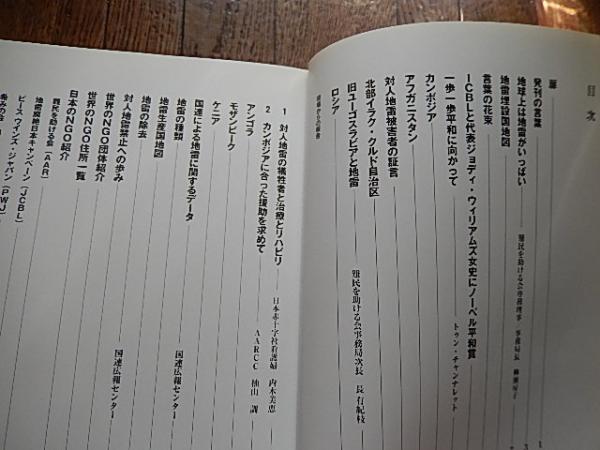 目次
扉
発刊の言葉
地球上は地雷がいっぱい
難民を助ける会専務理事・事務局長 柳瀬房子
地雷埋設国地図
言葉の花束
ICBLと代表ジョディ・ウィリアムズ女史にノーベル平和賞
一歩一歩平和に向かって
トゥン・チャンナレット
カンボジア
アフガニスタン
対人地雷被害者の証言
北部イラク・クルド自治区
旧ユーゴスラビアと地雷
難民を助ける会事務局次長 長 有紀枝
ロシア
現場からの報告
1 対人地雷の犠牲者と治療とリハビリ
日本赤十字社看護婦 内木美恵
2 カンボジアに合った援助を求めて
AARCC 柚山 訓
アンゴラ
モザンビーク
ケニア
国連による地雷に関するデータ
国連広報センター
地雷の種類
国連広報センター
地雷生産国地図
地雷の除去
対人地雷禁止への歩み
世界のNGO団体紹介
世界のNGO住所一覧
日本のNGO紹介
難民を助ける会(AAR)
地雷廃絶日本キャンペーン(JCBL)
ピースウインズ・ジャパン(PWJ)